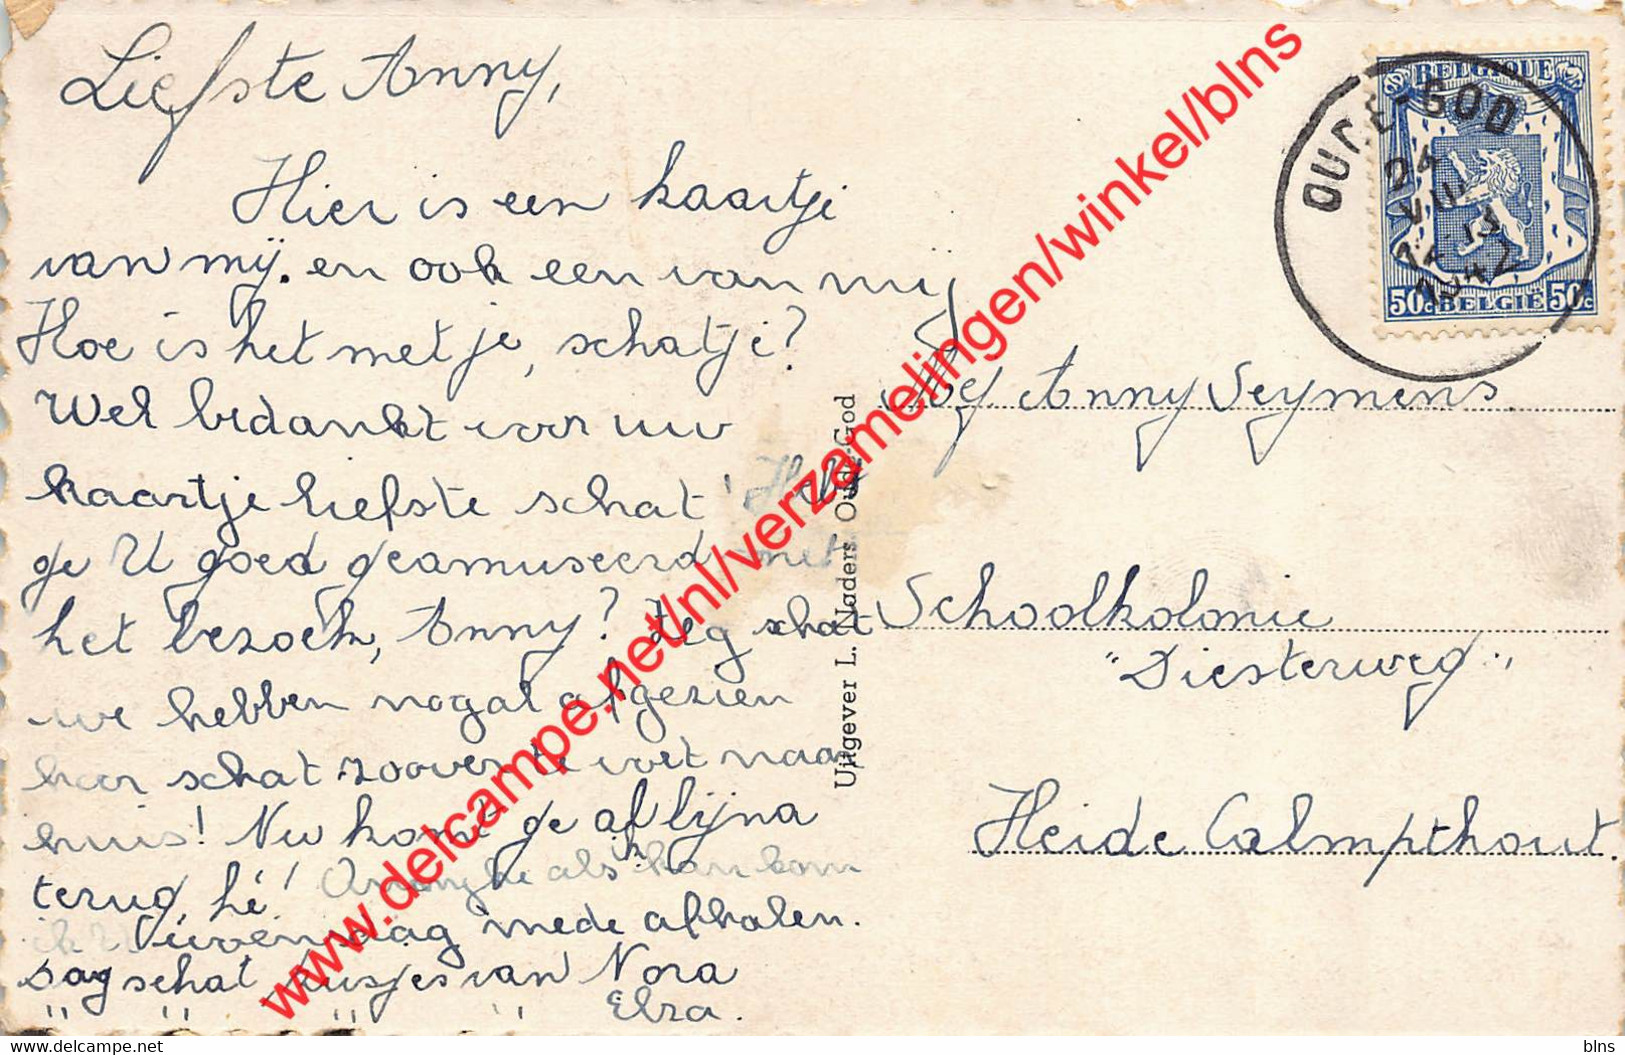 Liefste Anny,
Hier is een kaartje
van mij. en ook een van mij
Hoe is het met je, schatje?
Wel bedankt voor uw
kaartje liefste schat! Heb
ge U goed geamuseerd met
het bezoek, Anny? Zeg schat
we hebben nogal afgezien
hoor schat zoover te voet naar
huis! Nu komt ge af lijna
terug, hé! als kan kom
ik U vrijdag mede afhalen.
Dag schat kusjes van Nora
" " " " Elza.
Uitgever L. Naders Oude-God
BELGIQUE
50c BELGIË 50c
OUDE-GOD
24
VIII
13
12
1942
Mej Anny Seymens.
Schoolkolonie
"Diesterweg"
Heide Calmpthout.
www.delcampe.net/nl/verzamelingen/winkel/blns
www.delcampe.net
blns